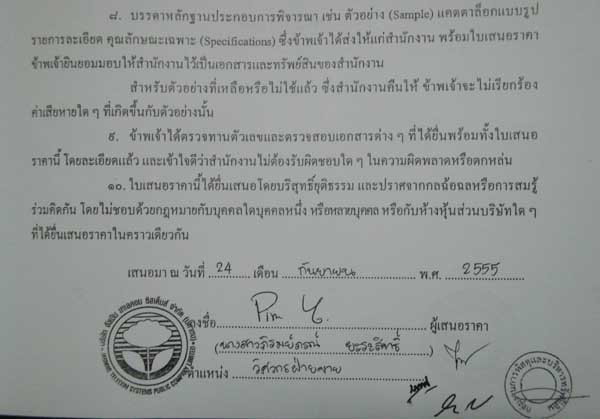 ๘. บรรดาหลักฐานประกอบการพิจารณา เช่น ตัวอย่าง (Sample) แคตตาล็อกแบบรูป
รายการละเอียด คุณลักษณะเฉพาะ (Specifications) ซึ่งข้าพเจ้าได้ส่งให้แก่สำนักงาน พร้อมใบเสนอราคา
ข้าพเจ้ายินยอมมอบให้สำนักงานไว้เป็นเอกสารและทรัพย์สินของสำนักงาน
สำหรับตัวอย่างที่เหลือหรือไม่ใช้แล้ว ซึ่งสำนักงานคืนให้ ข้าพเจ้าจะไม่เรียกร้อง
ค่าเสียหายใด ๆ ที่เกิดขึ้นกับตัวอย่างนั้น
๙. ข้าพเจ้าได้ตรวจทานตัวเลขและตรวจสอบเอกสารต่าง ๆ ที่ได้ยื่นพร้อมทั้งใบเสนอ
ราคานี้ โดยละเอียดแล้ว และเข้าใจดีว่าสำนักงานไม่ต้องรับผิดชอบใด ๆ ในความผิดพลาดหรือตกหล่น
๑๐. ใบเสนอราคานี้ได้ยื่นเสนอโดยบริสุทธิ์ยุติธรรม และปราศจากกลฉ้อฉลหรือการสมรู้
ร่วมคิดกัน โดยไม่ชอบด้วยกฎหมายกับบุคคลใดบุคคลหนึ่ง หรือหลายบุคคล หรือกับห้างหุ้นส่วนบริษัทใด ๆ
ที่ได้ยื่นเสนอราคาในคราวเดียวกัน
เสนอมา ณ วันที่ 24 เดือน กันยายน พ.ศ. 2555
ลงชื่อ Pim Y. ผู้เสนอราคา
(นางสาวภิรมย์ภรณ์
ตำแหน่ง วิศวกรฝ่ายขาย
TELECOM SYSTEMS PUBLIC